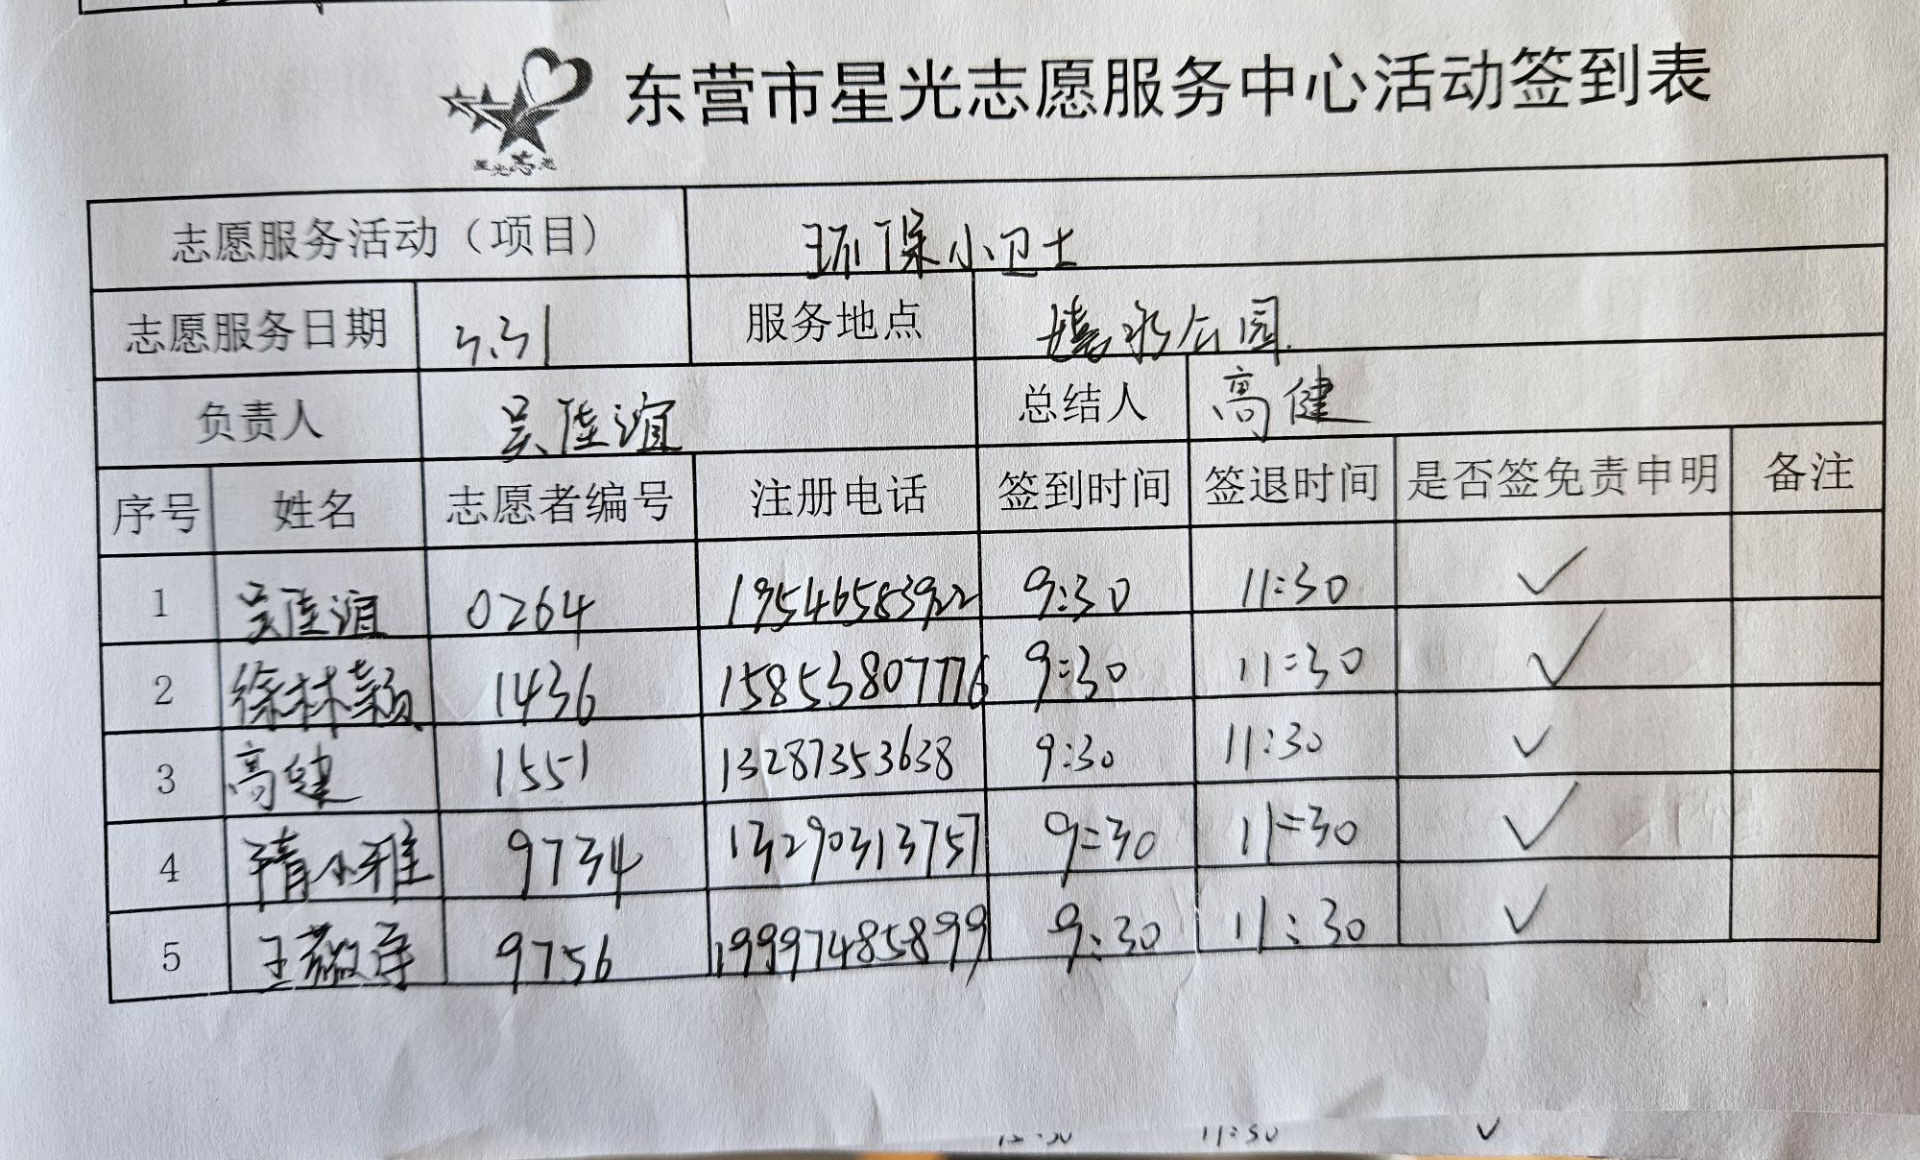 东营市星光志愿服务中心活动签到表
星光志愿
志愿服务活动（项目） 环保小卫士
志愿服务日期 3.31 服务地点 公园
负责人 吴佳谊 总结人 高健
序号 姓名 志愿者编号 注册电话 签到时间 签退时间 是否签免责申明 备注
1 吴佳谊 0264 19546583922 9:30 11:30 ✓
2 徐林颖 1436 15853807776 9:30 11:30 ✓
3 高健 1551 13287353638 9:30 11:30 ✓
4 隋小雅 9734 13290313757 9:30 11:30 ✓
5 王 9756 19997485899 9:30 11:30 ✓
11:30 ✓